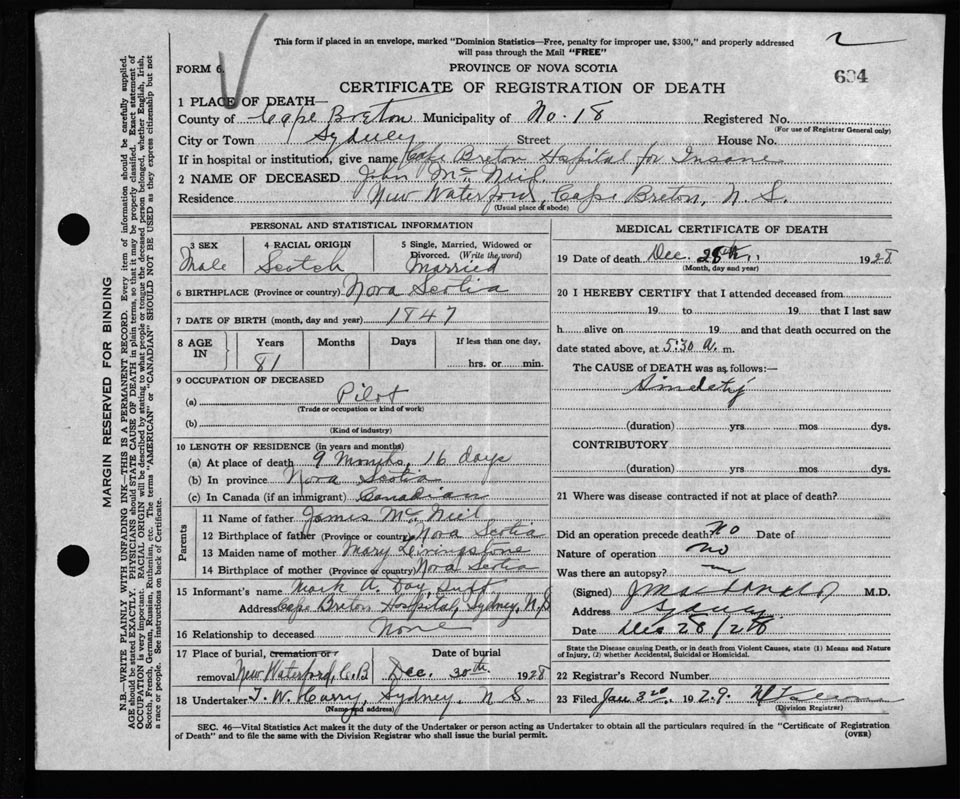 This form if placed in an envelope, marked "Dominion Statistics—Free, penalty for improper use, $300," and properly addressed
will pass through the Mail "FREE"
FORM 6.
PROVINCE OF NOVA SCOTIA
604
CERTIFICATE OF REGISTRATION OF DEATH
1 PLACE OF DEATH—
County of Cape Breton Municipality of No. 18 Registered No.
(For use of Registrar General only)
City or Town Sydney Street House No.
If in hospital or institution, give name Cape Breton Hospital for Insane
2 NAME OF DECEASED John McNeil
Residence New Waterford, Cape Breton, N. S.
(Usual place of abode)
PERSONAL AND STATISTICAL INFORMATION
3 SEX 4 RACIAL ORIGIN 5 Single, Married, Widowed or
Divorced. (Write the word)
Male Scotch Married
6 BIRTHPLACE (Province or country) Nova Scotia
7 DATE OF BIRTH (month, day and year) 1847
8 AGE IN Years Months Days If less than one day,
81 hrs. or min.
9 OCCUPATION OF DECEASED
(a) Pilot
(Trade or occupation or kind of work)
(b)
(Kind of industry)
10 LENGTH OF RESIDENCE (in years and months)
(a) At place of death 9 Months, 16 days
(b) In province Nova Scotia
(c) In Canada (if an immigrant) Canadian
Parents
11 Name of father James McNeil
12 Birthplace of father (Province or country) Nova Scotia
13 Maiden name of mother Mary Livingstone
14 Birthplace of mother (Province or country) Nova Scotia
15 Informant's name Mark A. Day, Supt
Address Cape Breton Hospital, Sydney, N.S
16 Relationship to deceased None
17 Place of burial, cremation or Date of burial
removal New Waterford, C.B Dec. 30th. 1928
18 Undertaker T. W. Curry, Sydney, N. S.
(Name and address)
MEDICAL CERTIFICATE OF DEATH
19 Date of death Dec. 28th, 1928
(Month, day and year)
20 I HEREBY CERTIFY that I attended deceased from
19 to 19 that I last saw
h alive on 19 and that death occurred on
date stated above, at 5:30 A. m.
The CAUSE of DEATH was as follows:—
(duration) yrs mos dys.
CONTRIBUTORY
(duration) yrs mos dys.
21 Where was disease contracted if not at place of death?
Did an operation precede death? No Date of
Nature of operation no
Was there an autopsy?
(Signed) J MacDonald M.D.
Address Sydney
Date Dec 28/28
State the Disease causing Death, or in death from Violent Causes, state (1) Means and Nature
of Injury, (2) whether Accidental, Suicidal or Homicidal.
22 Registrar's Record Number
23 Filed Jan 3rd. 1929.
(Division Registrar)
SEC. 46—Vital Statistics Act makes it the duty of the Undertaker or person acting as Undertaker to obtain all the particulars required in the "Certificate of Registration
of Death" and to file the same with the Division Registrar who shall issue the burial permit.
(OVER)
MARGIN RESERVED FOR BINDING
N.B.—WRITE PLAINLY WITH UNFADING INK—THIS IS A PERMANENT RECORD. Every item of information should be carefully supplied.
AGE should be stated EXACTLY. PHYSICIANS should STATE CAUSE OF DEATH in plain terms, so that it may be properly classified. Exact statement of
OCCUPATION is very important. RACIAL ORIGIN will be described by stating to what people or tongue the deceased person belonged, whether English, Irish,
Scotch, French, German, Russian, Ruthenian, etc. The terms "AMERICAN" or "CANADIAN" SHOULD NOT BE USED as they express citizenship but not
a race or people. See instructions on back of Certificate.